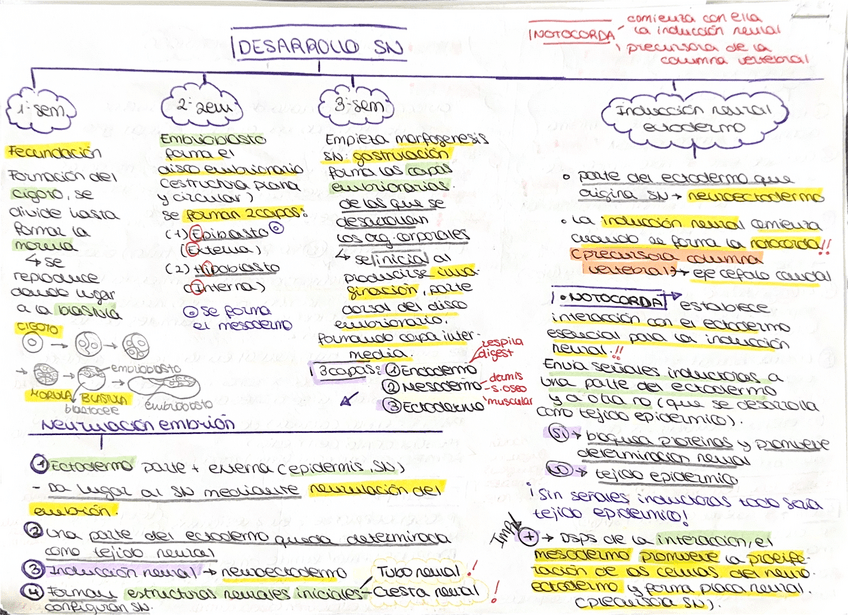 DESARROLLO SN
NOTOCORDA
comienza con ella
la inducción neural
precursora de la
columna vertebral
1ª sem
Fecundación
Formación del
cigoto, se
divide hasta
formar la
mórula
↳ se
reproduce
dando lugar
a la blástula
CIGOTO
MÓRULA BLÁSTULA
embrioblasto
blastocele
embrioblasto
2ª sem
Embrioblasto
forma el
disco embrionario
(estructura plana
y circular)
se forman 2 capas:
(1) Epiblasto
(Externa)
(2) Hipoblasto
(Interna)
se forma
el mesodermo
3ª sem
Empieza morfogenesis
SN: gastrulación
forma las capas
embrionarias.
de las que se
desarrollan
los org. corporales
↳ se inicia al
producirse inva-
ginación, parte
dorsal del disco
embrionario,
formando capa inter-
media.
3 capas: ① Endodermo
respira
digest
② Mesodermo
dermis
s. óseo
muscular
③ Ectodermo
Inducción neural
ectodermo
• parte del ectodermo que
origina SN → neuroectodermo
• La inducción neural comienza
cuando se forma la notocorda!!
(precursora columna
vertebral) → eje céfalo caudal
• NOTOCORDA → establece
interacción con el ectodermo
esencial para la inducción
neural!!
Envía señales inductoras a
una parte del ectodermo
y a otra no (que se desarrolla
como tejido epidérmico).
SI → bloquea proteínas y promueve
determinación neural
NO → tejido epidérmico
¡Sin señales inductoras todo sería
tejido epidérmico!
Imp
+ → Dsps de la interacción, el
mesodermo promueve la prolife-
ración de las células del neuro-
ectodermo y forma placa neural.
(precursora SN).
Neurulación embrión
① Ectodermo parte + externa (epidermis, SN)
- Da lugar al SN mediante neurulación del
embrión.
② Una parte del ectodermo queda determinada
como tejido neural
③ Inducción neural → neuroectodermo
④ Forman estructuras neurales iniciales
Tubo neural!
Cresta neural!
configuran SN.